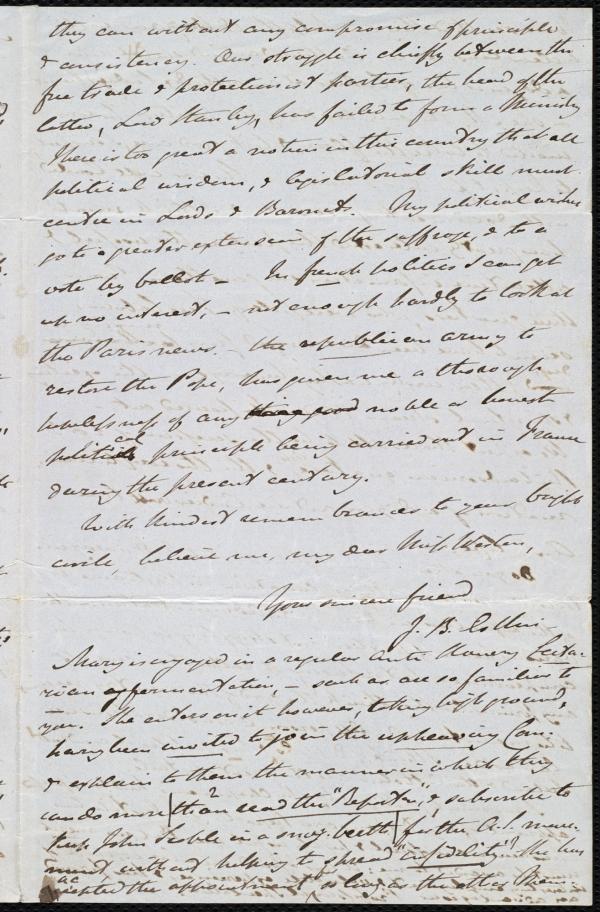 they can without any compromise of principle
& consistency. Our struggle is chiefly between the
free trade & protectionist parties, the head of the
latter, Lord Stanley, has failed to form a Ministry
There is too great a notion in this country that all
political wisdom, & legislatorial skill must
centre in Lords & Baronets. My political wishes
go to a greater extension of the suffrage, & to a
vote by ballot – In french politics I can get
up no interest, – not enough hardly to look at
the Paris news. – the republican army to
restore the Pope, has given me a thorough
hopelessness of any noble or honest
political principle being carried out in France
during the present century.
With kindest remembrances to your bright
circle, believe me, my dear Miss Weston,
Your sincere friend
J. B. Estlin
Mary is engaged in a regular anti slavery Secta-
rian fermentation, – such as are so familiar to
you. She enters on it however, taking high ground,
having been invited to join the upheaving Com:
& explain to them the manner in which they
can do more than read the "Reporter", & subscribe to
keep John Scoble in a snug berth for the A.S. move-
ment, without helping to spread "infidelity"! She has
accepted the appointment so long as the other Mem-